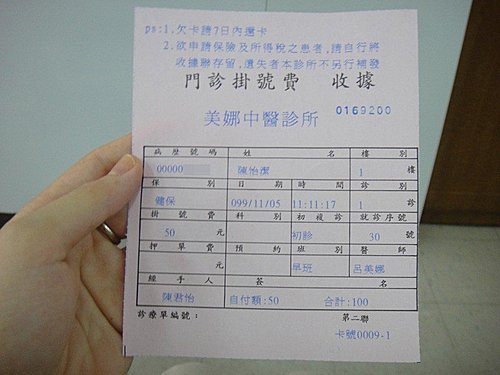 ps:1.欠卡請7日內還卡
2.欲申請保險及所得稅之患者,請自行將
收據聯存留,遺失者本診所不另行補發
門診掛號費 收據
0169200
美娜中醫診所
病歷號碼 姓名 樓別
00000 陳怡潔 1 樓
保別 日期 時間 診別
健保 099/11/05 11:11:17 1 診
掛號費 科別 初複診 就診序號
50 元 初診 30 號
押單費 預約 班別 醫師
元 早班 呂美娜
經手人 簽名
陳君怡 自付額:50 合計:100
診療單編號: 第二聯
卡號0009-1